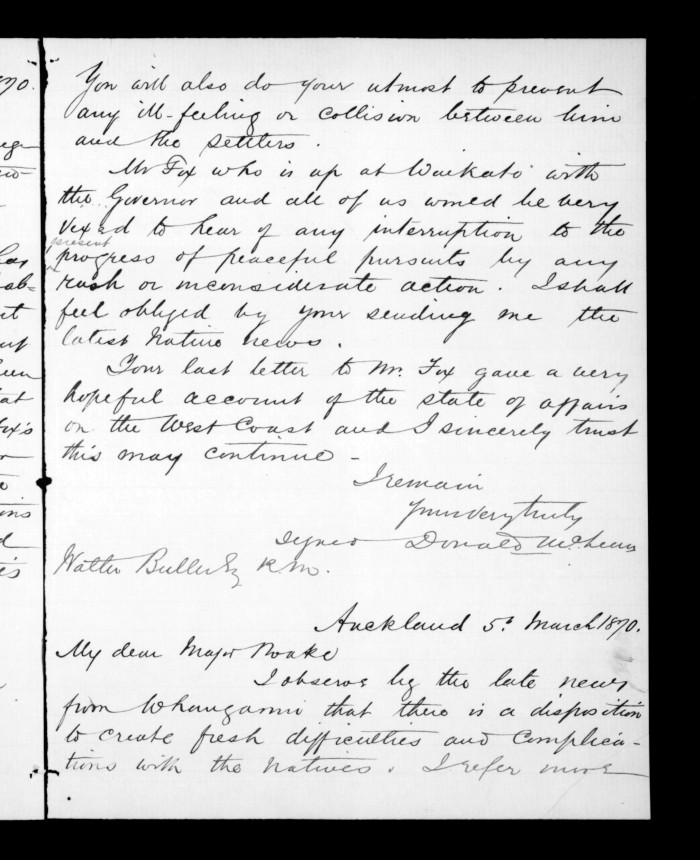 You will also do your utmost to prevent
any ill-feeling or collision between him
and the settlers.
Mr Fox who is up at Waikato with
the Governor and all of us would be very
vexed to hear of any interruption to the
present
progress of peaceful pursuits by any
rash or inconsiderate action. I shall
feel obliged by your sending me the
latest Native news.
Your last letter to Mr. Fox gave a very
hopeful account of the state of affairs
on the West Coast and I sincerely trust
this may continue -
I remain
Yours very truly
Signed Donald McLean
Walter Buller Esq R.M.
Auckland 5th March 1870.
My dear Major Noake
I observe by the late news
from Whanganui that there is a disposition
to create fresh difficulties and complica-
tions with the Natives. I refer more